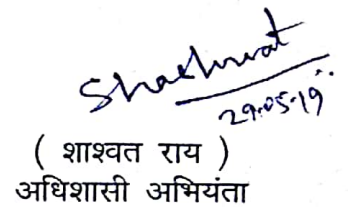 Shashwat
29.05.19
( शाश्वत राय )
अधिशासी अभियंता